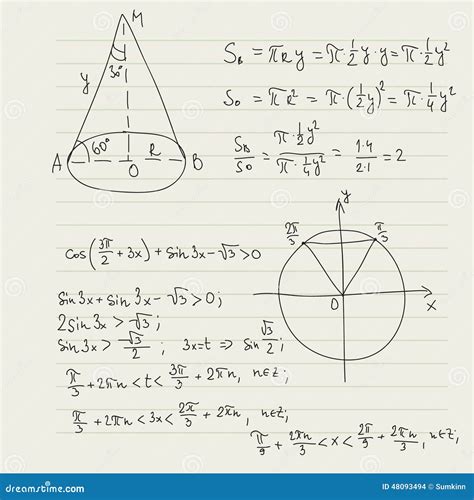 M
y
30°
A 60° O R B
S_B = πRy = π·½y·y = π·½y²
S_O = πR² = π·(½y)² = π·¼y²
S_B/S_O = (π·½y²)/(π·¼y²) = (1·4)/(2·1) = 2
y
2π/3 π/3
O
x
cos(3π/2 + 3x) + sin3x - √3 > 0
sin3x + sin3x - √3 > 0;
2sin3x > √3;
sin3x > √3/2; 3x = t ⇒ sin √3/2;
π/3 + 2πn < t < 3π/3 + 2πn, n∈Z;
π/3 + 2πn < 3x < 2π/3 + 2πn, n∈Z;
π/9 + 2πn/3 < x < 2π/9 + 2πn/3, n∈Z;
dreamstime.com
ID 48093494 © Sumkinn